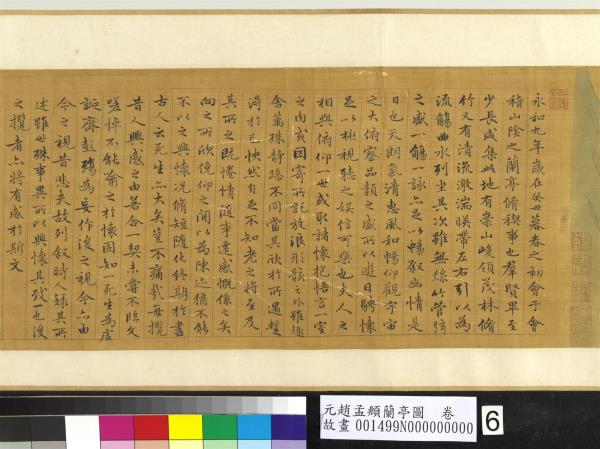 永和九年歲在癸丑暮春之初會于會
稽山陰之蘭亭脩稧事也羣賢畢至
少長咸集此地有崇山峻領茂林脩
竹又有清流激湍暎帶左右引以為
流觴曲水列坐其次雖無絲竹管弦
之盛一觴一詠亦足以暢叙幽情是
日也天朗氣清惠風和暢仰觀宇宙
之大俯察品類之盛所以遊目騁懷
足以極視聽之娛信可樂也夫人之
相與俯仰一世或取諸懷抱悟言一室
之內或因寄所託放浪形骸之外雖趣
舍萬殊靜躁不同當其欣於所遇蹔
得於己怏然自足不知老之將至及
其所之既惓情隨事遷感慨係之矣
向之所欣俛仰之間以為陳迹猶不能
不以之興懷况脩短隨化終期於盡
古人云死生亦大矣豈不痛哉每攬
昔人興感之由若合一契未嘗不臨文
嗟悼不能喻之於懷固知一死生為虛
誕齊彭殤為妄作後之視今亦由
今之視昔悲夫故列叙時人錄其所
述雖世殊事異所以興懷其致一也後
之攬者亦將有感於斯文
元趙孟頫蘭亭圖 卷
故畫 001499N000000000
6